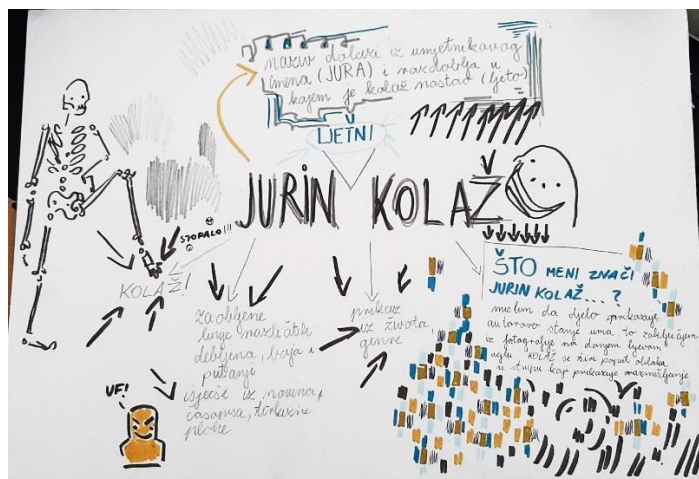 naziv dolazi iz umjetnikovog
imena (JURA) i razdoblja u
kojem je kolaž nastao (ljeto)
LJETNI
JURIN KOLAŽ
STOPALO!!!
KOLAŽ!
zaobljene
linije različitih
debljina, boja i
putanji
isječci iz novina,
časopisa,
plohe
prikaz
iz života,
genre
UF!
ŠTO MENI ZNAČI
JURIN KOLAŽ...?
mislim da djelo prikazuje
autorovo stanje uma, to zaključujem
iz fotografije na danjem lijevom
uglu. KOLAŽ se širi poput oblaka
u stripu koji prikazuje razmišljanje